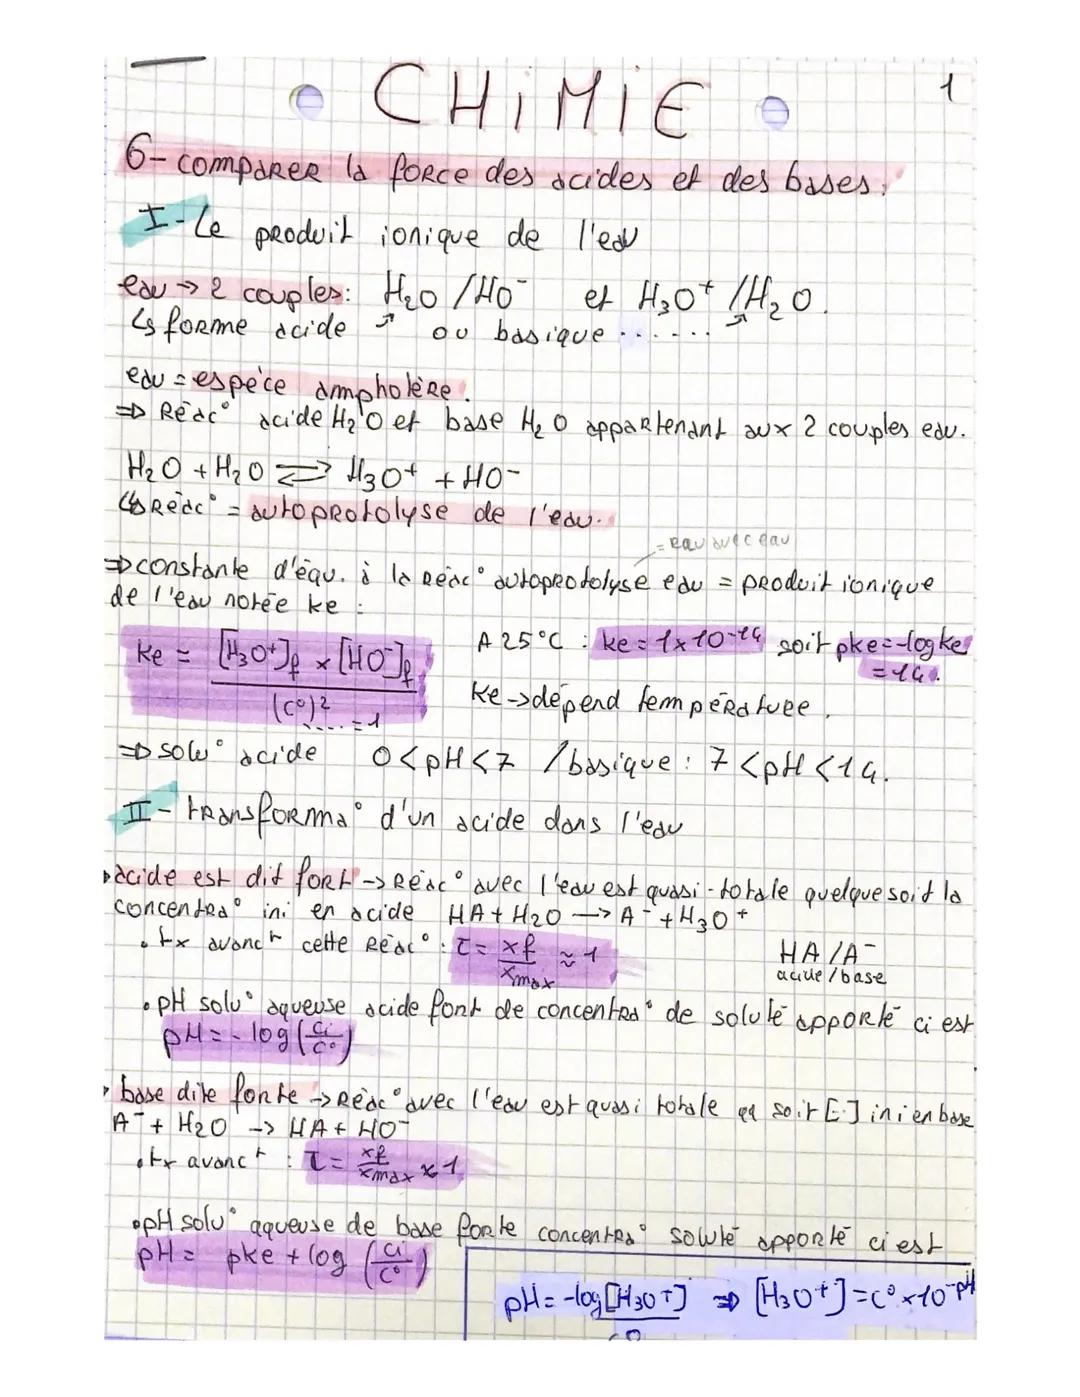 CHIMIE
1
6- comparer la force des acides et des bases.
I - Le produit ionique de l'eau
eau → 2 couples: H₂O / HO⁻ et H₃O⁺ / H₂O.
↳ forme acide ↗ ou basique ....... ↗
eau = espèce amphotère.
⇒ Réac° acide H₂O et base H₂O appartenant aux 2 couples eau.
H₂O + H₂O ⇌ H₃O⁺ + HO⁻
↳ Réac° = autoprotolyse de l'eau.
= eau avec eau
⇒ constante d'équ. à la réac° autoprotolyse eau = produit ionique
de l'eau notée ke :
ke = [H₃O⁺]f × [HO⁻]f / (c°)² .... = 1
A 25°C : ke = 1×10⁻¹⁴ soit pke = -log ke
= 14.
Ke → dépend température.
⇒ solu° acide 0 < pH < 7 / basique : 7 < pH < 14.
II - transforma° d'un acide dans l'eau
▸ acide est dit fort → Réac° avec l'eau est quasi-totale quelque soit la
concentra° ini en acide HA + H₂O → A⁻ + H₃O⁺
• tx avanct cette réac° : τ = xf / xmax ≈ 1
HA / A⁻
acide / base
• pH solu° aqueuse acide fort de concentra° de soluté apporté ci est
pH = - log (ci / c°)
▸ base dite forte → Réac° avec l'eau est quasi totale qq soit [.] ini en base
A⁻ + H₂O → HA + HO⁻
• tx avanct : τ = xf / xmax ≈ 1
• pH solu° aqueuse de base forte concentra° soluté apporté ci est
pH = pke + log (ci / c°)
pH = -log [H₃O⁺] / c° ⇒ [H₃O⁺] = c° × 10⁻ᵖᴴ